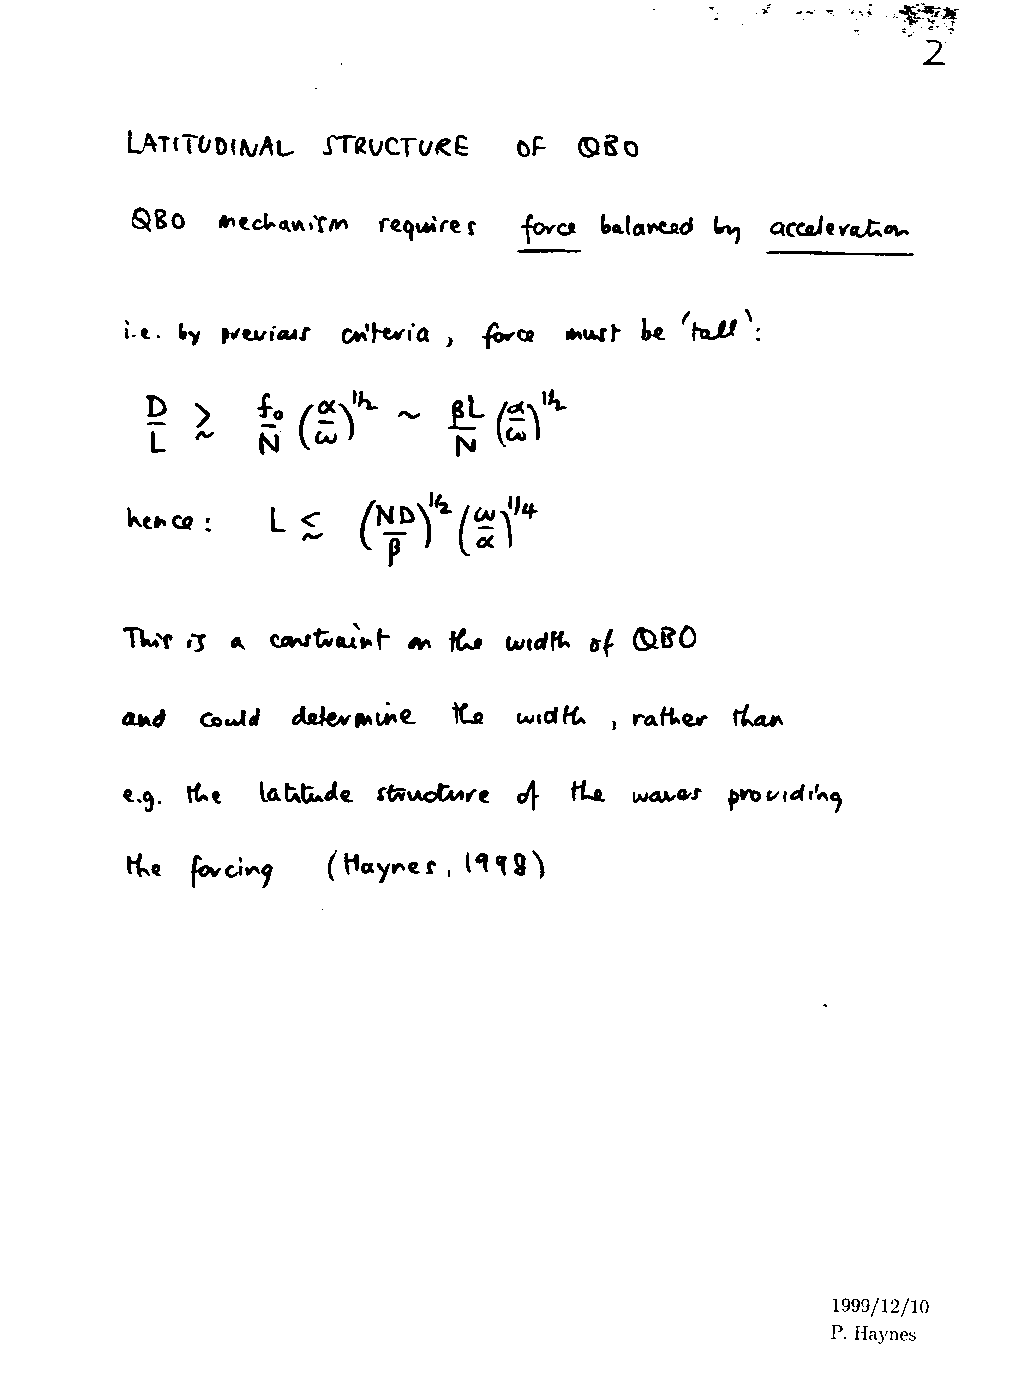 2
LATITUDINAL STRUCTURE OF QBO
QBO mechanism requires force balanced by acceleration
i.e. by previous criteria, force must be 'tall':
D/L ≳ f₀/N (α/ω)^1/2 ~ βL/N (α/ω)^1/2
hence: L ≲ (ND/β)^1/2 (ω/α)^1/4
This is a constraint on the width of QBO
and could determine the width, rather than
e.g. the latitude structure of the waves providing
the forcing (Haynes, 1998)
1999/12/10
P. Haynes